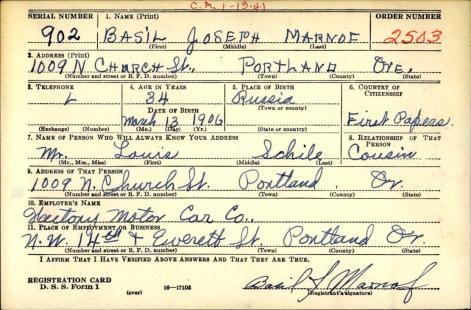 C.A. 1-13-41
SERIAL NUMBER 1. NAME (Print) ORDER NUMBER
902 BASIL JOSEPH MARNOF 2503
(First) (Middle) (Last)
2. ADDRESS (Print)
1009 N CHURCH St. PORTLAND ORE.
(Number and street or R. F. D. number) (Town) (County) (State)
3. TELEPHONE 4. AGE IN YEARS 5. PLACE OF BIRTH 6. COUNTRY OF CITIZENSHIP
34 Russia
(Town or county)
DATE OF BIRTH
March 13 1906 First Papers
(Exchange) (Number) (Mo.) (Day) (Yr.) (State or country)
7. NAME OF PERSON WHO WILL ALWAYS KNOW YOUR ADDRESS 8. RELATIONSHIP OF THAT PERSON
Mr. Louis Schile Cousin
(Mr., Mrs., Miss) (First) (Middle) (Last)
9. ADDRESS OF THAT PERSON
1009 N. Church St. Portland Or.
(Number and street or R. F. D. number) (Town) (County) (State)
10. EMPLOYER'S NAME
Motor Car Co.
11. PLACE OF EMPLOYMENT OR BUSINESS
N.W. 14th + Everett St. Portland Or.
(Number and street or R. F. D. number) (Town) (County) (State)
I AFFIRM THAT I HAVE VERIFIED ABOVE ANSWERS AND THAT THEY ARE TRUE.
REGISTRATION CARD
D. S. S. Form 1 (over) 16—17105 Basil J Marnof
(Registrant's signature)